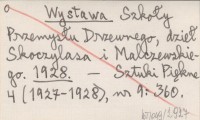 Wystawa Szkoły
Przemysłu Drzewnego, dzieł
Skoczylasa i Malczewskie-
go. 1928. — Sztuki Piękne
4 (1927-1928), nr 9: 360.